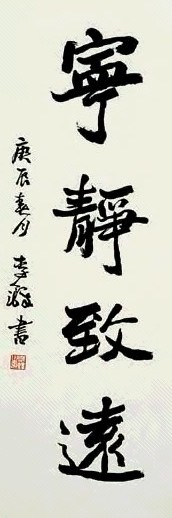 寧靜致遠
庚辰春月 李 書